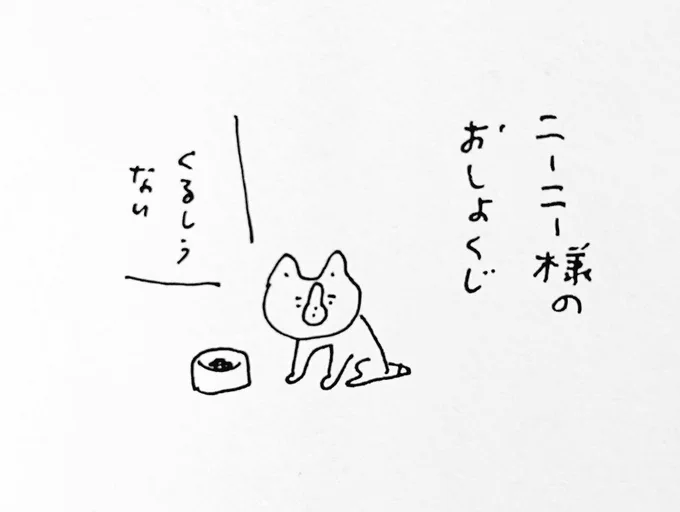 ニーニー様の
おしょくじ
くるしう
ない